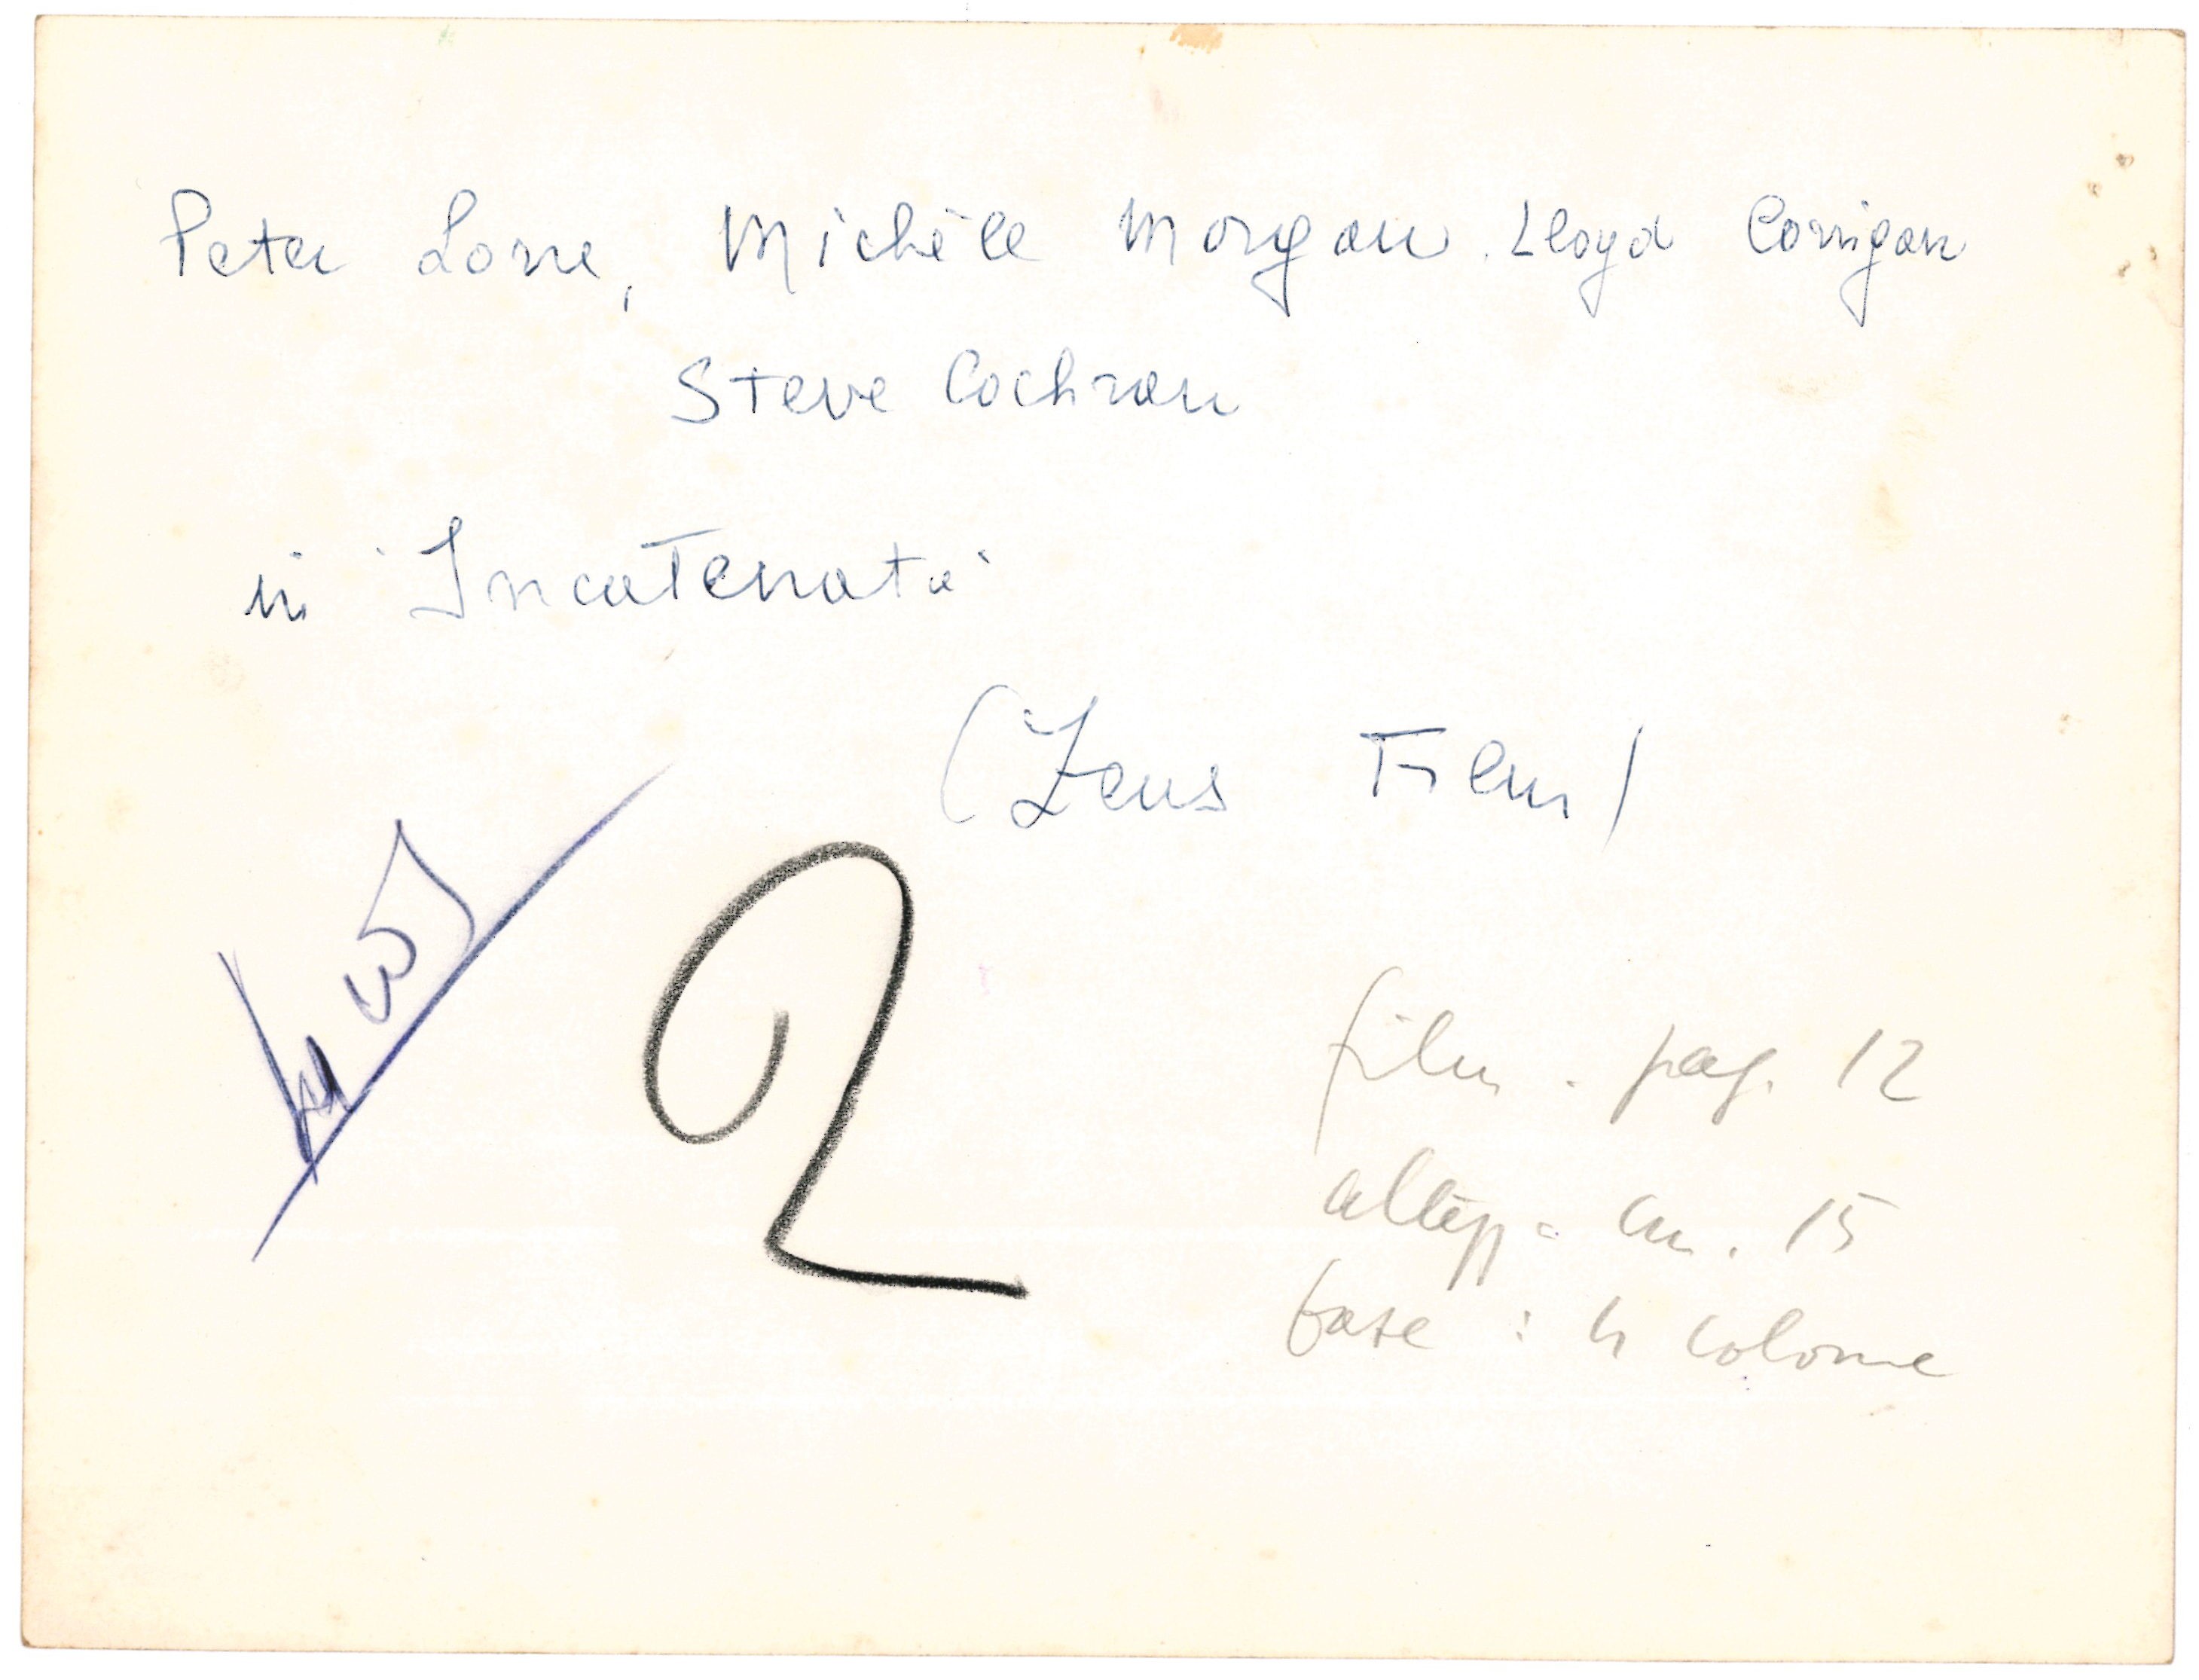 Peter Lorre, Michèle Morgan. Lloyd Corrigan
Steve Cochran
in "Incatenata"
(Zeus Film)
2
film . pag. 12
cm. 15
base : 4 colonne